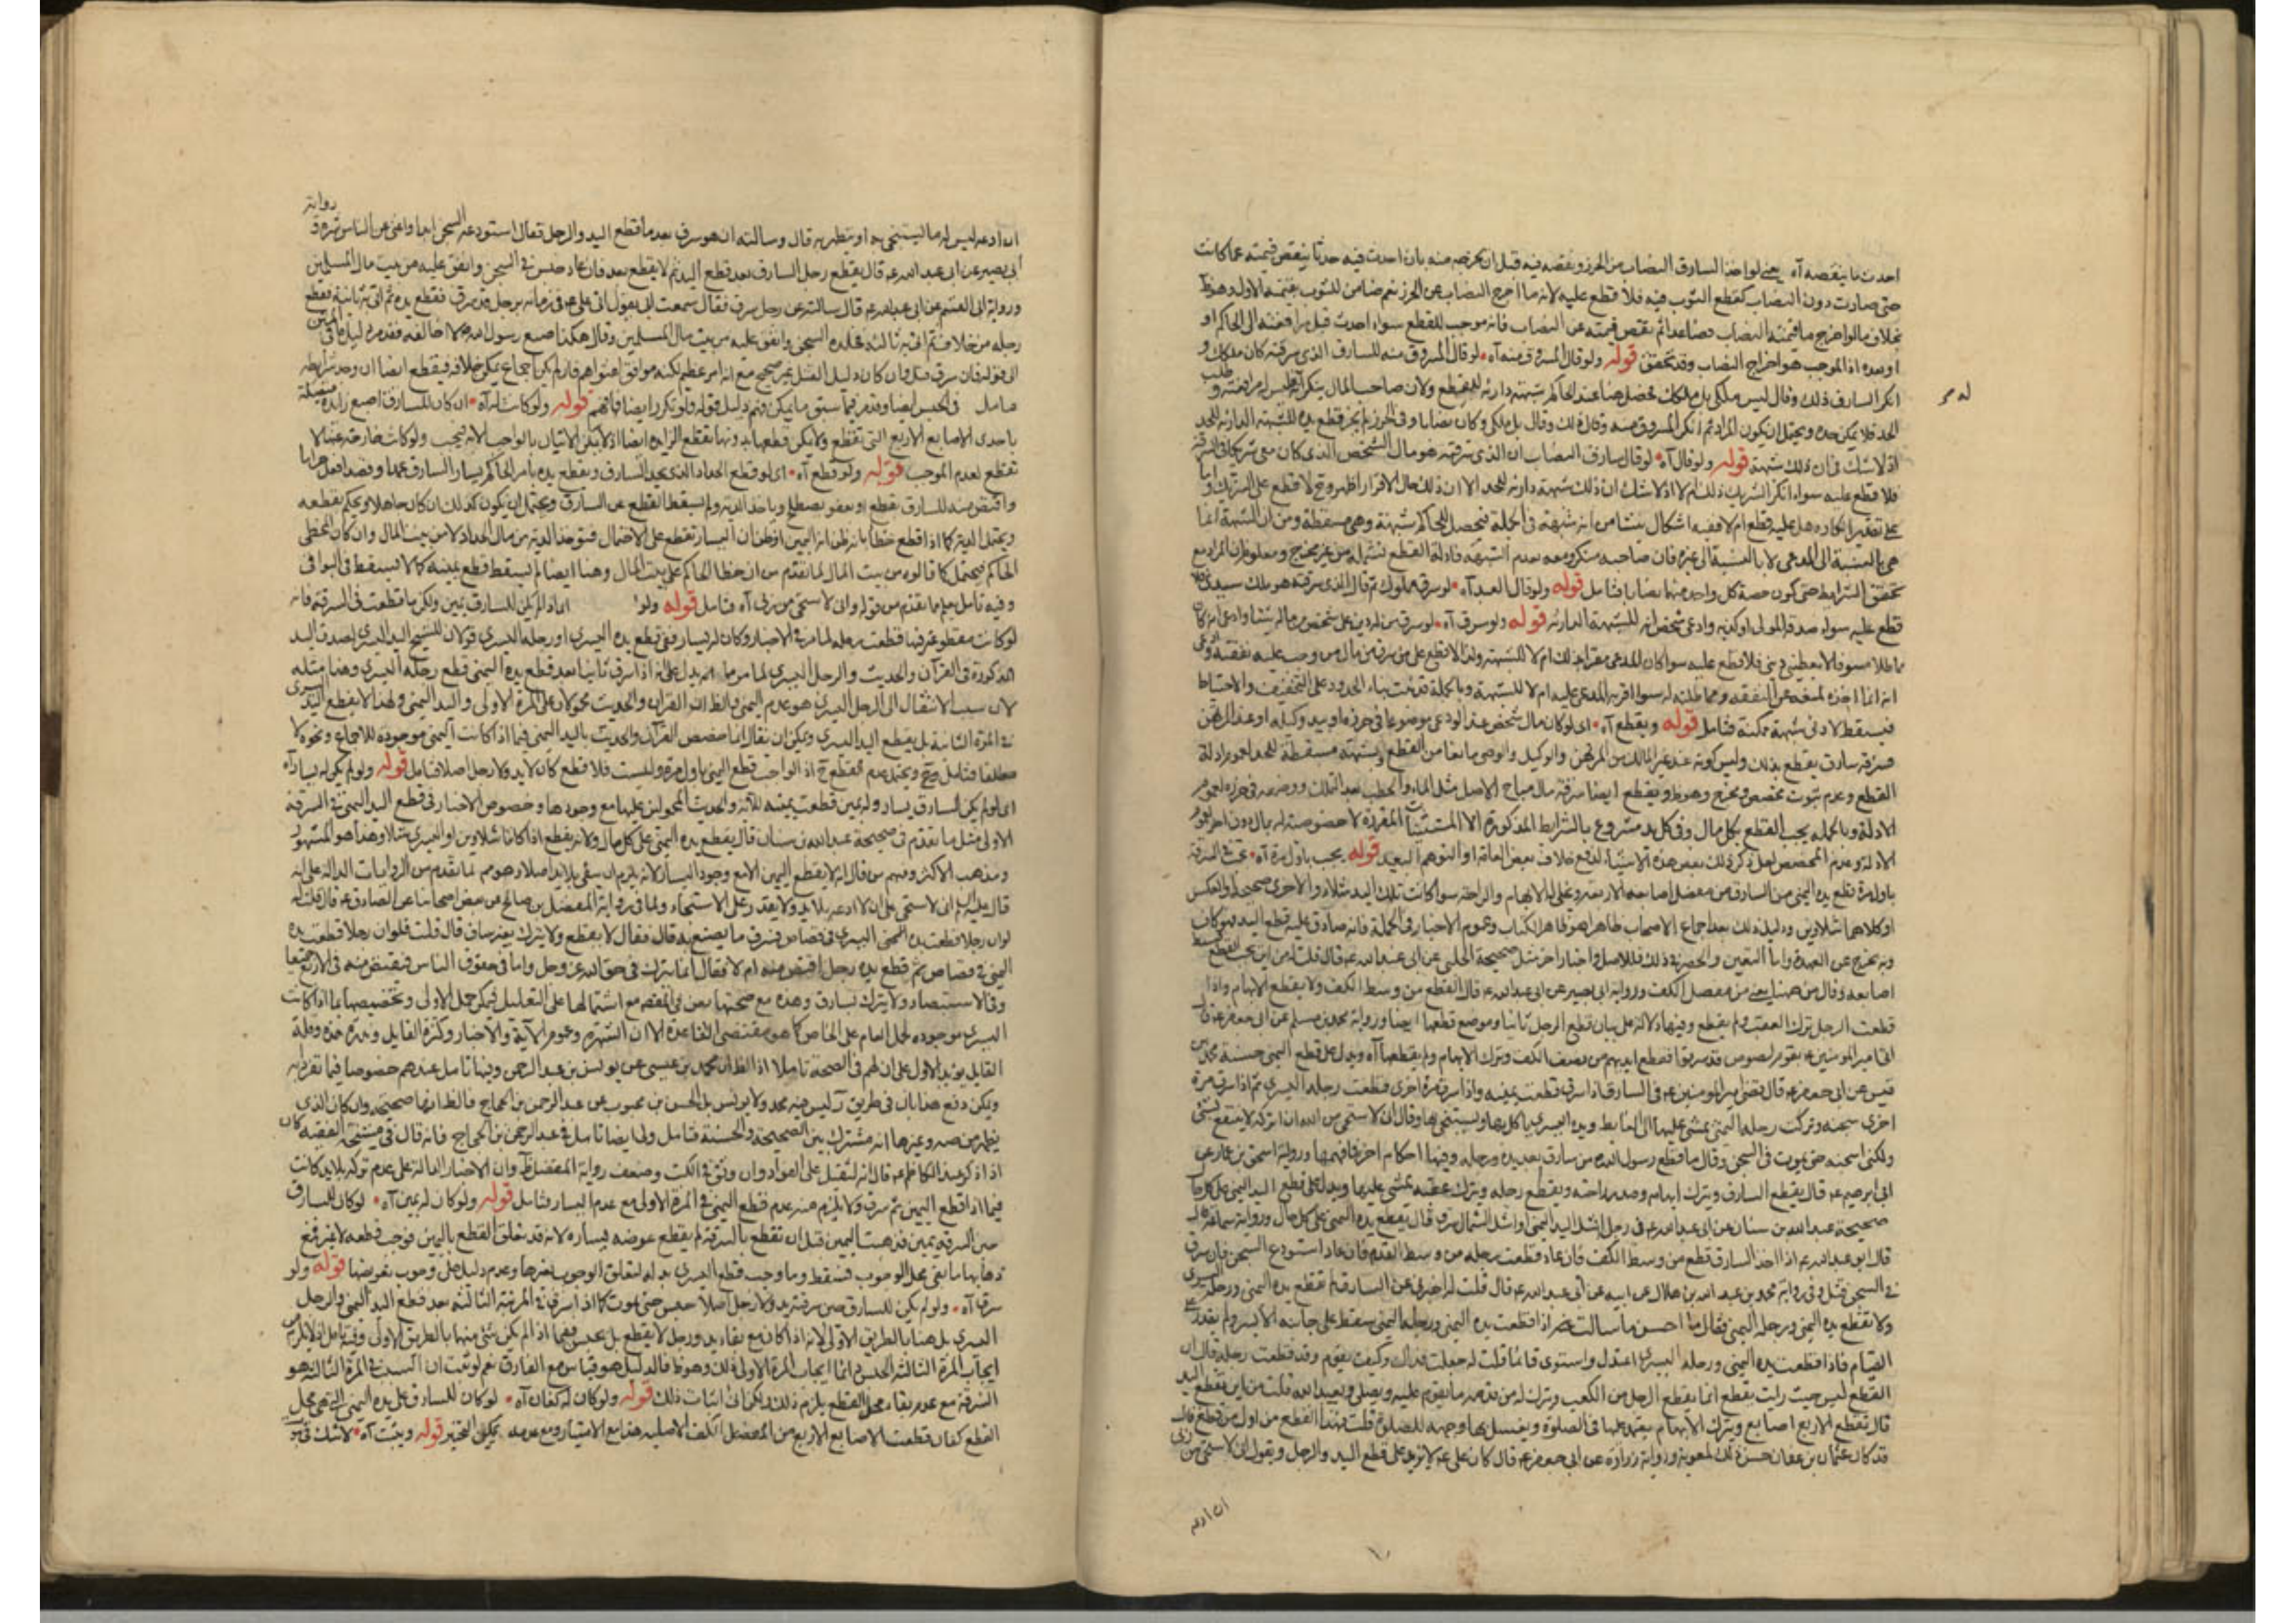 احدث ما ينقصه آه يعني لو اخذ السارق النصاب من الحرز ونقصه فيه قبل ان يخرجه منه بان احدث فيه حدثا ينقص قيمته عما كانت
حتى صارت دون النصاب كقطع الثوب فيه فلا قطع عليه لانه ما اخرج النصاب عن الحرز نعم ضامن للثوب بقيمته الاولى وهو ظ
بخلاف ما لو اخرج ما قيمته النصاب فصاعدا ثم نقص قيمته عن النصاب فانه موجب للقطع سواء احدث قبل مرافعته الى الحاكم او
او بعده اذ الموجب هو اخراج النصاب وقد تحقق قوله ولو قال المسروق منه آه لو قال المسروق منه للسارق الذي سرقته كان ملكك و
انكر السارق ذلك وقال ليس ملكي بل ملكك فحصل هنا عند الحاكم شبهة دارئة للقطع ولان صاحب المال ينكر
الحد فلا يمكن حده ويحتمل ان يكون المراد ثم انكر المسروق منه وقال ذلك وقال بل ملكي وكان نصابا وفي الحرز لم يجز قطع يده للشبهة الدارئة للحد
اذ لا شك في ان ذلك شبهة قوله ولو قال آه لو قال سارق النصاب ان الذي سرقته هو مال الشخص الذي كان معي شريكا في السرقة
فلا قطع عليه سواء انكر الشريك ذلك ام لا اذ لا شك ان ذلك شبهة دارئة للحد الا ان ذلك حال الاقرار اظهر وح لا قطع على الشريك واما
على تقدير انكاره هل عليه قطع ام لا ففيه اشكال ينشا من انه شبهة في الجملة فتحصل للحاكم شبهة وهي مسقطة ومن ان الشبهة انما
هي بالنسبة الى المدعي لا بالنسبة الى غيره فان صاحبه منكر ومعه بعدم الشبهة فادلة القطع تشمله من غير مخرج ومعلوم ان المراد مع
تحقق الشرايط حتى كون حصة كل واحد منهما نصابا فتامل قوله ولو قال العبد آه لو سرق مملوك ثم قال الذي سرقته هو ملك سيدي فلا
قطع عليه سواء صدقه المولى او كذبه وادعى شخص انه للشبهة الدارئة قوله ولو سرق آه لو سرق من له دين على شخص من ماله شيئا وادعى انه كان
مماطلا مسوفا لا يعطيني ديني فلا قطع عليه سواء كان المدعي مقرا بذلك ام لا للشبهة ولذا لا قطع على من سرق من مال من وجب عليه نفقته وادعى
انه انما اخذه لمنعه عن النفقة ومماطلته له سواء اقر به المدعى عليه ام لا للشبهة وبالجملة قد ثبت بناء الحدود على التخفيف والاحتياط
فيسقط لادنى شبهة ممكنة فتامل قوله ويقطع آه اي لو كان مال شخص عند الودعي موضوعا في حرزه او بيد وكيله او عند المرتهن
فسرقه سارق يقطع بذلك وليس كونه عند غير المالك من المرتهن والوكيل والودعي مانعا من القطع وشبهة مسقطة للحد لعموم ادلة
القطع وعدم ثبوت مخصص ومخرج وهو ظ ويقطع ايضا سرقة مال مباح الاصل مثل الماء والحطب بعد التملك ووضعه في حرزه لعموم
الادلة وبالجملة يجب القطع بكل مال وفي كل يد مشروع بالشرايط المذكورة الا المستثنيات المقررة لا خصوصية له بمال دون اخر لعموم
الادلة وعدم المخصص لعل ذكر ذلك بعض هذه الاشياء لدفع خلاف بعض العامة او التوهم البعيد قوله يجب باول مرة آه تجب في السرقة
باول مرة قطع يده اليمنى من السارق من مفصل اصابعه الاربعة وتخلى له الابهام والراحة سواء كانت تلك اليد شلاء والاخرى صحيحة او العكس
او كلاهما شلاوين ودليل ذلك بعد اجماع الاصحاب ظاهرا هو ظاهر الكتاب وعموم الاخبار في الجملة فانه صادق عليه قطع اليد فيمكن ان
وبه يخرج عن العهدة واما التعين والحصر في ذلك فللاصل واخبار اخر مثل صحيحة الحلبي عن ابي عبد الله عم قال قلت له من اين يجب القطع فبسط
اصابعه وقال من ههنا يعني من مفصل الكف ورواية ابي بصير عن ابي عبد الله عم قال القطع من وسط الكف ولا يقطع الابهام واذا
قطعت الرجل ترك العقب ولم يقطع وفيها دلالة على بيان قطع الرجل ثانيا وموضع قطعها ايضا ورواية محمد بن مسلم عن ابي جعفر عم قال
اتي امير المؤمنين عم بقوم لصوص قد سرقوا فقطع ايديهم من نصف الكف وترك الابهام ولم يقطعها آه ويدل على قطع اليمنى حسنة محمد بن
قيس عن ابي جعفر عم قال قضى امير المؤمنين عم في السارق اذا سرق قطعت يمينه واذا سرق مرة اخرى قطعت رجله اليسرى ثم اذا سرق مرة
اخرى سجنه وتركت رجله اليمنى يمشي عليها الى الغائط ويده اليسرى ياكل بها ويستنجي بها وقال اني لاستحي من الله ان اتركه لا ينتفع بشئ
ولكني اسجنه حتى يموت في السجن وقال ما قطع رسول الله ص من سارق بعد يده ورجله وفيها احكام اخر فافهمها ورواية اسحق بن عمار عن
ابي ابراهيم عم قال يقطع السارق ويترك ابهامه وصدر راحته ويقطع رجله ويترك عقبه يمشي عليها ويدل على قطع اليد اليمنى على كل حال
صحيحة عبد الله بن سنان عن ابي عبد الله عم في رجل اشل اليد اليمنى او اشل الشمال سرق قال يقطع يده اليمنى على كل حال ورواية سماعة قال
قال ابو عبد الله عم اذا اخذ السارق قطع من وسط الكف فان عاد قطعت رجله من وسط القدم فان عاد استودع السجن فان سرق
في السجن قتل وفي رواية محمد بن عبد الله بن هلال عن ابيه عن ابي عبد الله عم قال قلت له اخبرني عن السارق لم تقطع يده اليمنى ورجله اليسرى
ولا تقطع يده اليمنى ورجله اليمنى فقال ما احسن ما سالت عنه اذا قطعت يده اليمنى ورجله اليمنى سقط على جانبه الايسر ولم يقدر على
القيام فاذا قطعت يده اليمنى ورجله اليسرى اعتدل واستوى قائما قلت له جعلت فداك وكيف يقوم وقد قطعت رجله قال ان
القطع ليس حيث رايت يقطع انما يقطع الرجل من الكعب ويترك له من قدمه ما يقوم عليه ويصلي ويعبد الله قلت من اين تقطع اليد
قال تقطع الاربع اصابع ويترك الابهام يعتمد عليها في الصلوة ويغسل بها وجهه للصلوة قلت فهذا القطع من اول من قطع قال
قد كان عثمان بن عفان حسن ذلك لمعوية ورواية زرارة عن ابي جعفر عم قال كان علي عم لا يزيد على قطع اليد والرجل ويقول اني لاستحي من ربي
ان ادعه
ان ادعه ليس له ما يستنجي به او يتطهر به قال وسالته ان هو سرق بعد ما قطع اليد والرجل فقال استودعه السجن ابدا واغني عن الناس شره و رواية
ابي بصير عن ابي عبد الله عم قال يقطع رجل السارق بعد قطع اليد ثم لا يقطع بعد فان عاد حبس في السجن وانفق عليه من بيت مال المسلمين
ورواية ابي القسم عن ابي عبد الله عم قال سالته عن رجل سرق فقال سمعت ابي يقول اتي علي عم في زمانه برجل قد سرق فقطع يده ثم اتي به ثانية فقطع
رجله من خلاف ثم اتي به ثالثة فخلده السجن وانفق عليه من بيت مال المسلمين وقال هكذا صنع رسول الله ص لا اخالفه
الى قوله فان سرق قتل فان كان دليل القتل غير صحيح مع انه امر عظيم لكنه موافق لفتواهم فان لم يكن اجماع يمكن خلافه فيقطع ايضا ان وجد شرايطه
فتامل في الحبس ايضا وقد مر فيما سبق ما يمكن فهم دليل قوله فلو تكرر ايضا فافهم قوله ولو كانت له آه ان كان للسارق اصبع زائدة متصلة
باحدى الاصابع الاربع التي تقطع ولا يمكن قطعها بدونها يقطع الزايدة ايضا اذ لا يمكن الاتيان بالواجب الا به فيجب ولو كانت خارجة عنها لا
تقطع لعدم الموجب قوله ولو قطع آه اي لو قطع الحداد الذي يحد السارق ويقطع يده بامر الحاكم يسار السارق عمدا وقصدا فعل حراما
واقتص منه للسارق يقطع او يعفو بصطلح وياخذ الدية ولم يسقط القطع عن السارق ويحتمل ان يكون كذلك ان كان جاهلا ويحكم بقطعه
ويحتمل الدية كما اذا قطع خطأ بانه ظن انه اليمين او ظن ان اليسار تقطع على الاحتمال فتؤخذ الدية من مال الحداد لا من بيت المال وان كان المخطي
الحاكم فيحتمل كما قالوه من بيت المال لما تقدم من ان خطا الحاكم على بيت المال وهنا ايضا لم يسقط قطع يمينه كما لا يسقط في البواقي
وفيه تامل يعلم مما تقدم من قوله واني لاستحي من ربي آه فتامل قوله ولو اما اذا لم يكن للسارق يمين ولكن ما قطعت في السرقة فانه
لو كانت مقطوعة فيها قطعت رجله لما مر في الاخبار وكان له يسار ففي قطع يده اليسرى او رجله اليسرى قولان للشيخ اليد اليسرى لصدق اليد
المذكورة في القرآن والحديث والرجل اليسرى لما مر مما يدل على انه اذا سرق ثانيا بعد قطع يده اليمنى قطع رجله اليسرى وهنا مثله
لان سبب الانتقال الى الرجل اليسرى هو عدم اليمنى والظ ان القرآن والحديث محمولان على المرة الاولى واليد اليمنى ولهذا لا يقطع اليد اليسرى
في المرة الثانية بل يقطع اليد اليسرى ويمكن ان يقال انما خصص القرآن والحديث باليد اليمنى فيما اذا كانت اليمنى موجودة للاجماع ونحوه لا
مطلقا فتامل وح ويحتمل عدم القطع ح اذ الواجب قطع اليمنى باول مرة وليست فلا قطع كان لا يد ولا رجل اصلا فتامل قوله ولو لم يكن له يسار آه
اي لو لم يكن للسارق يسار وله يمين قطعت يمينه للآية والحديث المحمولين عليها مع وجودها وخصوص الاخبار في قطع اليد اليمنى في السرقة
الاولى مثل ما تقدم في صحيحة عبد الله بن سنان قال يقطع يده اليمنى على كل حال ولانه يقطع اذا كانتا شلاوين او اليسرى شلاء وهذا هو المشهور
ومذهب الاكثر ومنهم من قال انه لا يقطع اليمين الا مع وجود اليسار لانه يلزم ان يبقى بلا يد اصلا وهو مم لما تقدم من الروايات الدالة على انه
قال عليه السلام اني لاستحي على ان لا ادعه بلا يد ولا يقدر على الاستنجاء ولما في رواية المفضل بن صالح عن بعض اصحابنا عن الصادق عم قال قلت له
لو ان رجلا قطعت يده اليسرى في قصاص فسرق ما يصنع به قال فقال لا يقطع ولا يترك بغير ساق قال قلت فلو ان رجلا قطعت يده
اليمنى في قصاص ثم قطع يد رجل اقتص منه ام لا فقال انما يترك في حق الله عز وجل واما في حقوق الناس فيقتص منه في الاربع جميعا
وفي الاستبصار ولا يترك بسارق وهذه مع صحتها نص في المقصد مع اشتمالها على التعليل فيمكن حمل الاولى وتخصيصها بما اذا كانت
اليسرى موجودة لحمل العام على الخاص كما هو مقتضى القاعدة الا ان الشهرة وعموم الآية والاخبار وكثرة القايل وندرة هذه وقلة
القايل يؤيد الاول على ان لهم في الصحة تاملا اذ الظ ان محمد بن عيسى عن يونس بن عبد الرحمن وفيها تامل عندهم خصوصا فيما تفرد به
ويمكن دفع هذا بان في طريق آخر ليس فيه محمد ولا يونس بل الحسن بن محبوب عن عبد الرحمن بن الحجاج فالظ انها صحيحة وان كان الذي
يظهر من صه وغيرها انه مشترك بين الصحيحة والحسنة فتامل ولنا ايضا تامل في عبد الرحمن بن الحجاج فانه قال في مشيخة الفقيه كان
اذا ذكر عند الكاظم عم قال انه لثقيل على الفؤاد وان وثق في الكتب وضعف رواية المفضل ظ وان الاخبار الدالة على عدم تركه بلا يد كانت
فيما اذا قطع اليمين ثم سرق ولا يلزم منه عدم قطع اليمنى في المرة الاولى مع عدم اليسار فتامل قوله ولو كان له يمين آه لو كان للسارق
حين السرقة يمين فذهبت اليمين قبل ان تقطع بالسرقة لم يقطع عوضه يساره لانه قد تعلق القطع باليمين فوجب قطعه لا غير فمع
ذهابها ما بقي محل الوجوب فسقط وما وجب قطع اليسرى بدله لتعلق الوجوب بغيرها وعدم دليل على وجوب تعويضها قوله ولو
سرق آه ولو لم يكن للسارق حين سرقته يد ولا رجل اصلا حبس حتى يموت كما اذا سرق في المرتبة الثالثة بعد قطع اليد اليمنى والرجل
اليسرى بل هنا بالطريق الاولى لانه اذا كان مع بقاء يد ورجل لا يقطع بل يحبس ففيما اذا لم يكن شئ منها بالطريق الاولى وفيه تامل اذ لا يلزم من
ايجاب المرة الثالثة الحبس دائما ايجاب المرة الاولى ذلك وهو ظ فالدليل هو قياس مع الفارق نعم لو ثبت ان السبب في المرة الثالثة هو
السرقة مع عدم بقاء محل القطع يلزم ذلك لكن انى اثبات ذلك قوله ولو كان له كفان آه لو كان للسارق على يده اليمنى التي هي محل
القطع كفان قطعت الاصابع الاربع من المفصل الكف الاصلية هذا مع الامتياز ومع عدمه يمكن التخيير قوله ويثبت آه لا شك في ثبو